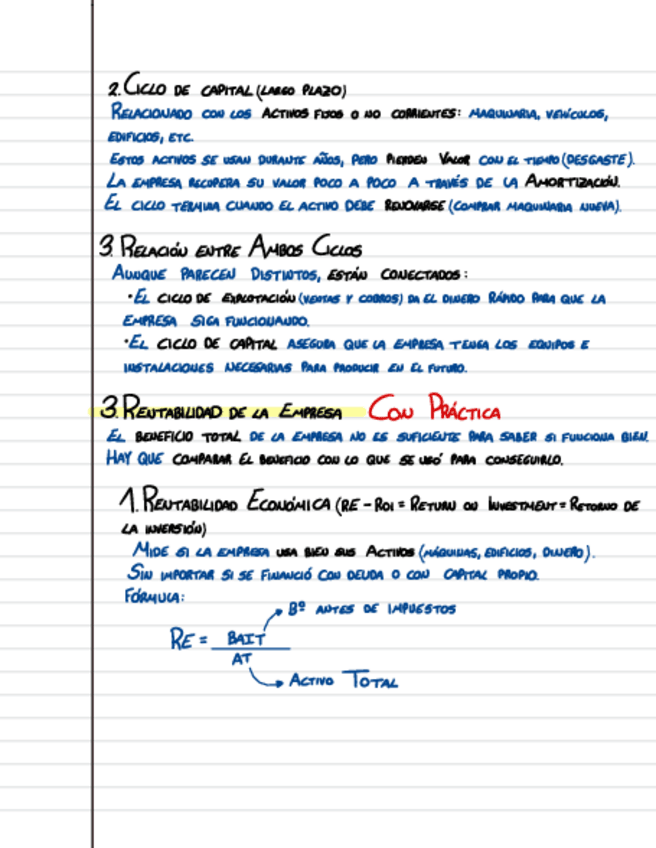 2. CICLO DE CAPITAL (LARGO PLAZO)
RELACIONADO CON LOS ACTIVOS FIJOS O NO CORRIENTES: MAQUINARIA, VEHÍCULOS,
EDIFICIOS, ETC.
ESTOS ACTIVOS SE USAN DURANTE AÑOS, PERO PIERDEN VALOR CON EL TIEMPO (DESGASTE).
LA EMPRESA RECUPERA SU VALOR POCO A POCO A TRAVÉS DE LA AMORTIZACIÓN.
EL CICLO TERMINA CUANDO EL ACTIVO DEBE RENOVARSE (COMPRAR MAQUINARIA NUEVA).
3. RELACIÓN ENTRE AMBOS CICLOS
AUNQUE PARECEN DISTINTOS, ESTÁN CONECTADOS:
·EL CICLO DE EXPLOTACIÓN (VENTAS Y COBROS) DA EL DINERO RÁPIDO PARA QUE LA
EMPRESA SIGA FUNCIONANDO.
·EL CICLO DE CAPITAL ASEGURA QUE LA EMPRESA TENGA LOS EQUIPOS E
INSTALACIONES NECESARIAS PARA PRODUCIR EN EL FUTURO.
3. RENTABILIDAD DE LA EMPRESA CON PRÁCTICA
EL BENEFICIO TOTAL DE LA EMPRESA NO ES SUFICIENTE PARA SABER SI FUNCIONA BIEN.
HAY QUE COMPARAR EL BENEFICIO CON LO QUE SE USÓ PARA CONSEGUIRLO.
1. RENTABILIDAD ECONÓMICA (RE - ROI = RETURN ON INVESTMENT = RETORNO DE
LA INVERSIÓN)
MIDE SI LA EMPRESA USA BIEN SUS ACTIVOS (MÁQUINAS, EDIFICIOS, DINERO).
SIN IMPORTAR SI SE FINANCIÓ CON DEUDA O CON CAPITAL PROPIO.
FÓRMULA:
Bº ANTES DE IMPUESTOS
RE = BAIT
AT
ACTIVO TOTAL